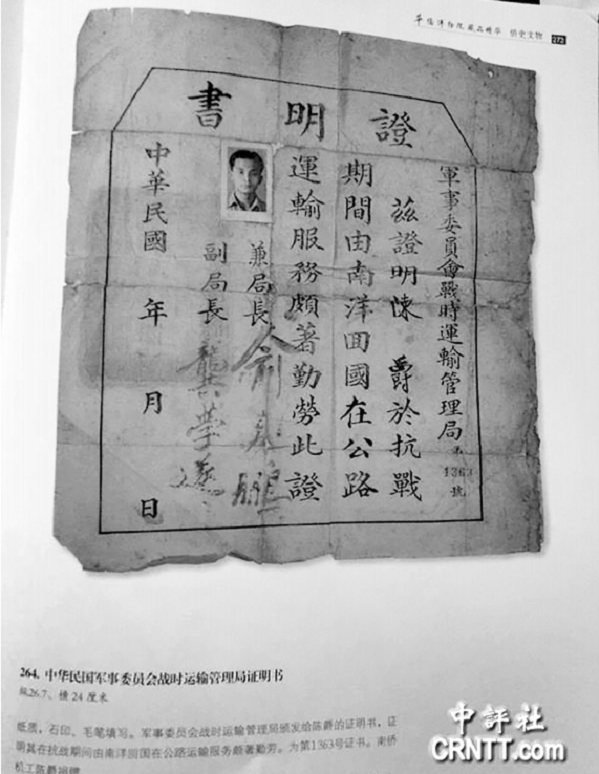 侨史文物
證明書
軍事委員會戰時運輸管理局
1363
號
茲證明陳 爵於抗戰
期間由南洋回國在公路
運輸服務頗著勤勞此證
兼局長 俞飛鵬
副局長 龔學遂
中華民國 年 月 日
264. 中华民国军事委员会战时运输管理局证明书
纵26.7、横24厘米
纸质，石印、毛笔填写。军事委员会战时运输管理局颁发给陈爵的证明书，证
明其在抗战期间由南洋回国在公路运输服务颇著勤劳。为第1363号证书。南侨
机工陈爵捐赠
中評社
CRNTT.com